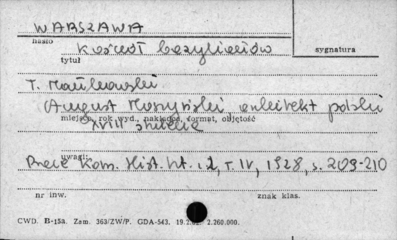 WARSZAWA
hasło
kościół bazylianów
tytuł
sygnatura
T. Mańkowski
August Moszyński, architekt polski
miejsc., rok wyd., nakładca, format, objętość
XVIII stulecia
uwagi:
Prace Kom. Hist. Szt. i 2, T. IV, 1928, s. 209-210
nr inw.
znak klas.
CWD. B-15a. Zam. 363/ZW/P. GDA-543. 2.260.000.